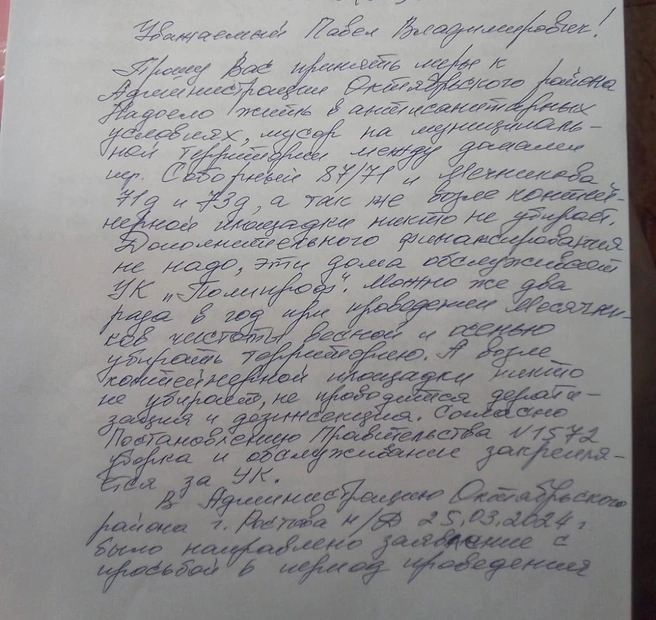 Уважаемый Павел Владимирович!
Прошу Вас принять меры к
Администрации Октябрьского района
Надоело жить в антисанитарных
условиях, мусор на муниципаль-
ной территории между домами
пр. Соборный 87/71 и Мечникова
71д и 73д, а так же возле контей-
нерной площадки никто не убирает.
Дополнительного финансирования
не надо, эти дома обслуживает
УК "Полипроф". Можно же два
раза в год при проведении Месячни-
ков чистоты весной и осенью
убирать территорию. А возле
контейнерной площадки никто
не убирает, не проводится дерати-
зация и дезинсекция. Согласно
Постановлению Правительства N1572
уборка и обслуживание закрепля-
ется за УК.
В Администрацию Октябрьского
района г. Ростова н/Д 25.03.2024 г
было направлено заявление с
просьбой в период проведения